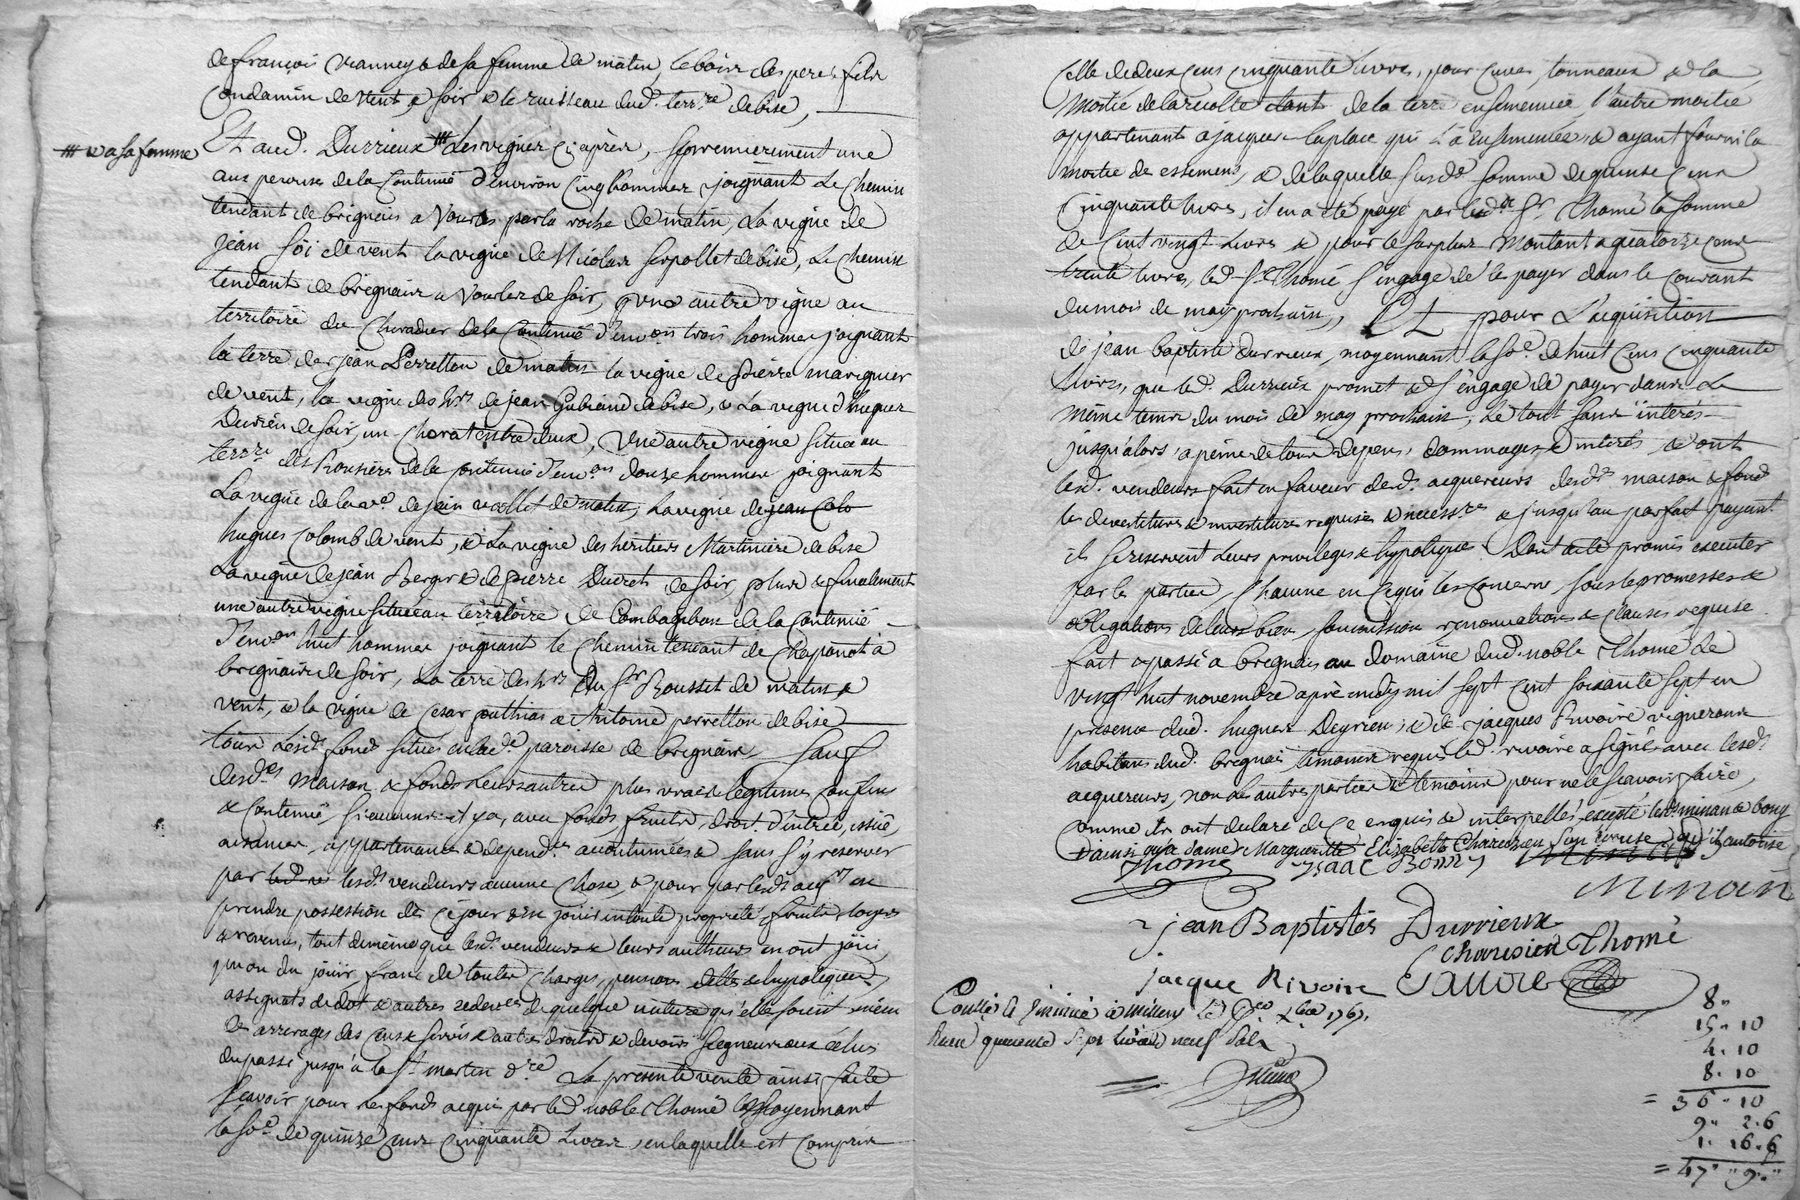 de françois vianney & de sa femme de matin, le bois des pere & fils
Condamin de vent, & soir & le ruisseau dud. terr.re de bise,
/// & a sa femme
Et aud. Durrieux /// Les vignes cy après, premierement une
aux perouses de la Contenue d'environ Cinq hommes joignant Le Chemin
tendant de brignais a Vourles par la roche de matin, La vigne de
jean de vent la vigne de Nicolas Serpollet de bise, Le Chemin
tendant de brignais a Vourles de soir, une autre vigne au
territoire du Cheradier de la Contenue d'envon trois hommes joignant
la terre de jean Perretton de matin la vigne de Pierre marignier
de vent, la vigne des hrs de jean Gubiand de bise, & La vigne d'hugues
Durrieu de soir, un entre deux, Une autre vigne située au
terr.re des de la Contenue d'env.on douze hommes joignant
La vigne de la ve. de jean vollet de matin, la vigne de jean Colo
hugues Colomb de vent, & La vigne des héritiers Martiniere de bise
La vigne de jean Berger & de pierre Ducret de soir, plus & finalement
une autre vigne située au territoire de Combagibon de la Contenue
d'envon huit hommes joignant le Chemin tendant de Chaponot à
brignais de soir, La terre des hrs du Sr Rousset de matin &
vent, & la vigne de Cesar pouthias & Antoine perretton de bise
tous Lesd. fonds situés en lad.e paroisse de brignais, Sauf
desd.es maison & fonds leurs autres plus vrais & legitimes Confins
& Contenue, si aucuns il y a, avec fonds, fruits, droit d'entrée, issüe,
aisances, appartenances & depend.es accoutumées & sans s'y reserver
par led. lesds vendeurs aucune Chose, & pour par lesds acq.rs en
prendre possession dès ce jour & en jouir en toute propriété, fruits loyers
& revenus, tout de même que lesd. vendeurs & leurs autheurs en ont joüi,
pu ou du joüir, franc de toutes Charges, pensions dettes & hypoteques,
assignats de dot & autres redev.es de quelque nature qu'elle soient même
des arrerages des cens & servis & autres droits & devoirs seigneuriaux échus
du passé jusqu'à la St. martin d.re La presente vente ainsi faite
Sçavoir pour les fonds acquis par led. noble Thomé moyennant
la so.e de quinze cens Cinquante Livres, en laquelle est comprise
Celle de deux Cens Cinquante livres, pour Cuves, tonneaux & la
Moitié de la récolte étant de la terre ensemencée l'autre moitié
appartenant a jacques Laplace qui l'a Ensemencée & ayant fourni la
moitié de semens, & de laquelle susd.e somme de quinze Cens
Cinquante livres, il en a été payé par led. Sr Thomé la somme
de Cent vingt Livres & pour le surplus Montant a quatorze cens
trente livres, led. Sr Thomé, s'engage de le payer dans le Courant
du mois de may prochain,, Et pour L'acquisition
de jean baptiste durrieux, moyennant la so.e de huit Cens Cinquante
Livres, que led. Durrieux promet & s'engage de payer dans Le
même tems du mois de may prochain, Le tout sans interés
jusqu'alors, a peine de tous depens, dommages & interêts & ont
lesd. vendeurs fait en faveur desd. acquereurs desd.es maison & fonds
les devestitures & investitures requises & necess.res & jusqu'au parfait payement
ils se reservent Leurs privileges & hypoteques Dont acte promis executer
par les parties, Chacune en Ce qui les Concerne, sous les promesses &
obligations de leurs biens, soumissions renonciations & clauses requises
fait & passé a brignais au domaine dud. noble Thomé Le
vingt huit novembre après midy mil sept cent soixante sept en
presence dud. hugues Deyrieu, & de jacques Rivoire vignerons
habitans dud. brignais, temoins requis led. rivoire a signé avec lesds
acquereurs, non les autres parties & temoins pour ne le sçavoir faire,
Comme ils ont declaré de Ce enquis & interpellés, excepté led. minan & bony
& ainsi qu'a dame Margueritte Elizabeth Charezieu son Epouse, qu'il autorise
Thomé Isaac Bonny
Minan
jean Baptistes Durrieux
Charesieu Thomé
jacque Rivoire
Xbre 1767.
quarente sept livres neuf sols
8"
15 " 10
4. 10
8. 10
= 36 " 10
9" 2. 6
1. 16. 6
= 47 " 9. "